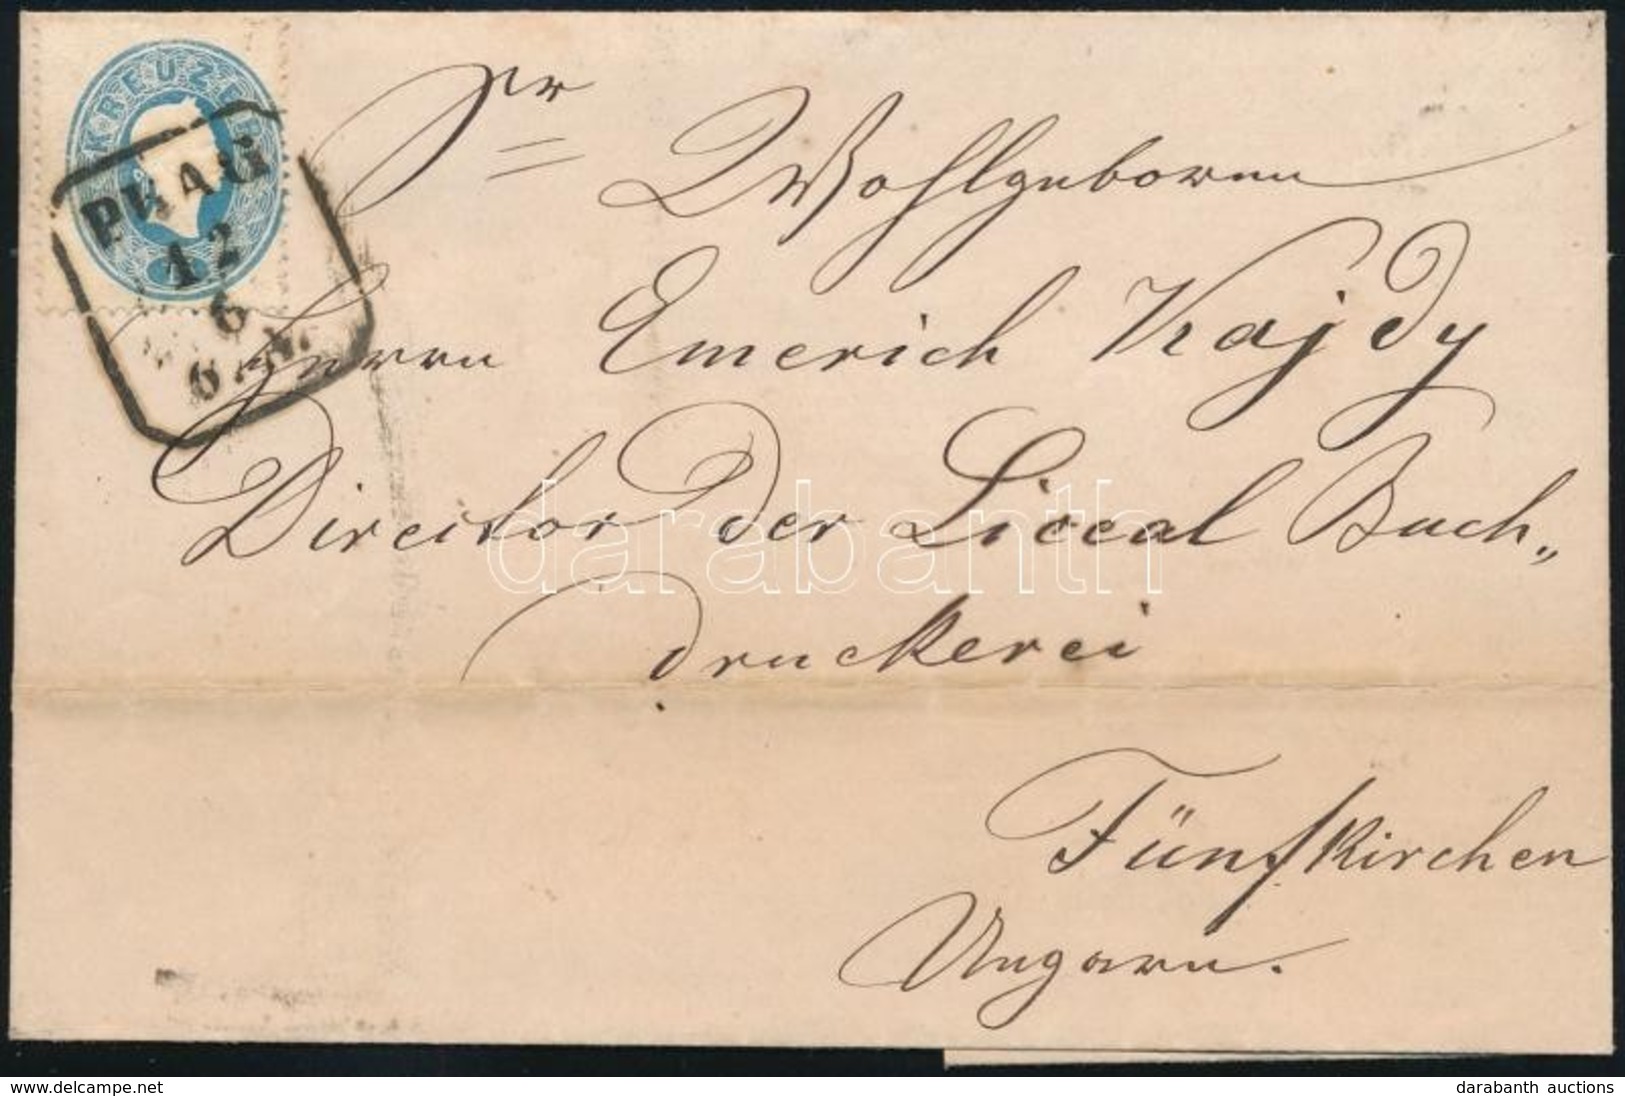 KREUZER
PRAG
12
6
6
Sr
Wohlgeboren
Herrn Emerich Kajdy
Director der Liceal Buch„
druckerei
Fünfkirchen
Ungarn.
darabanth
www.delcampe.net
darabanth auctions